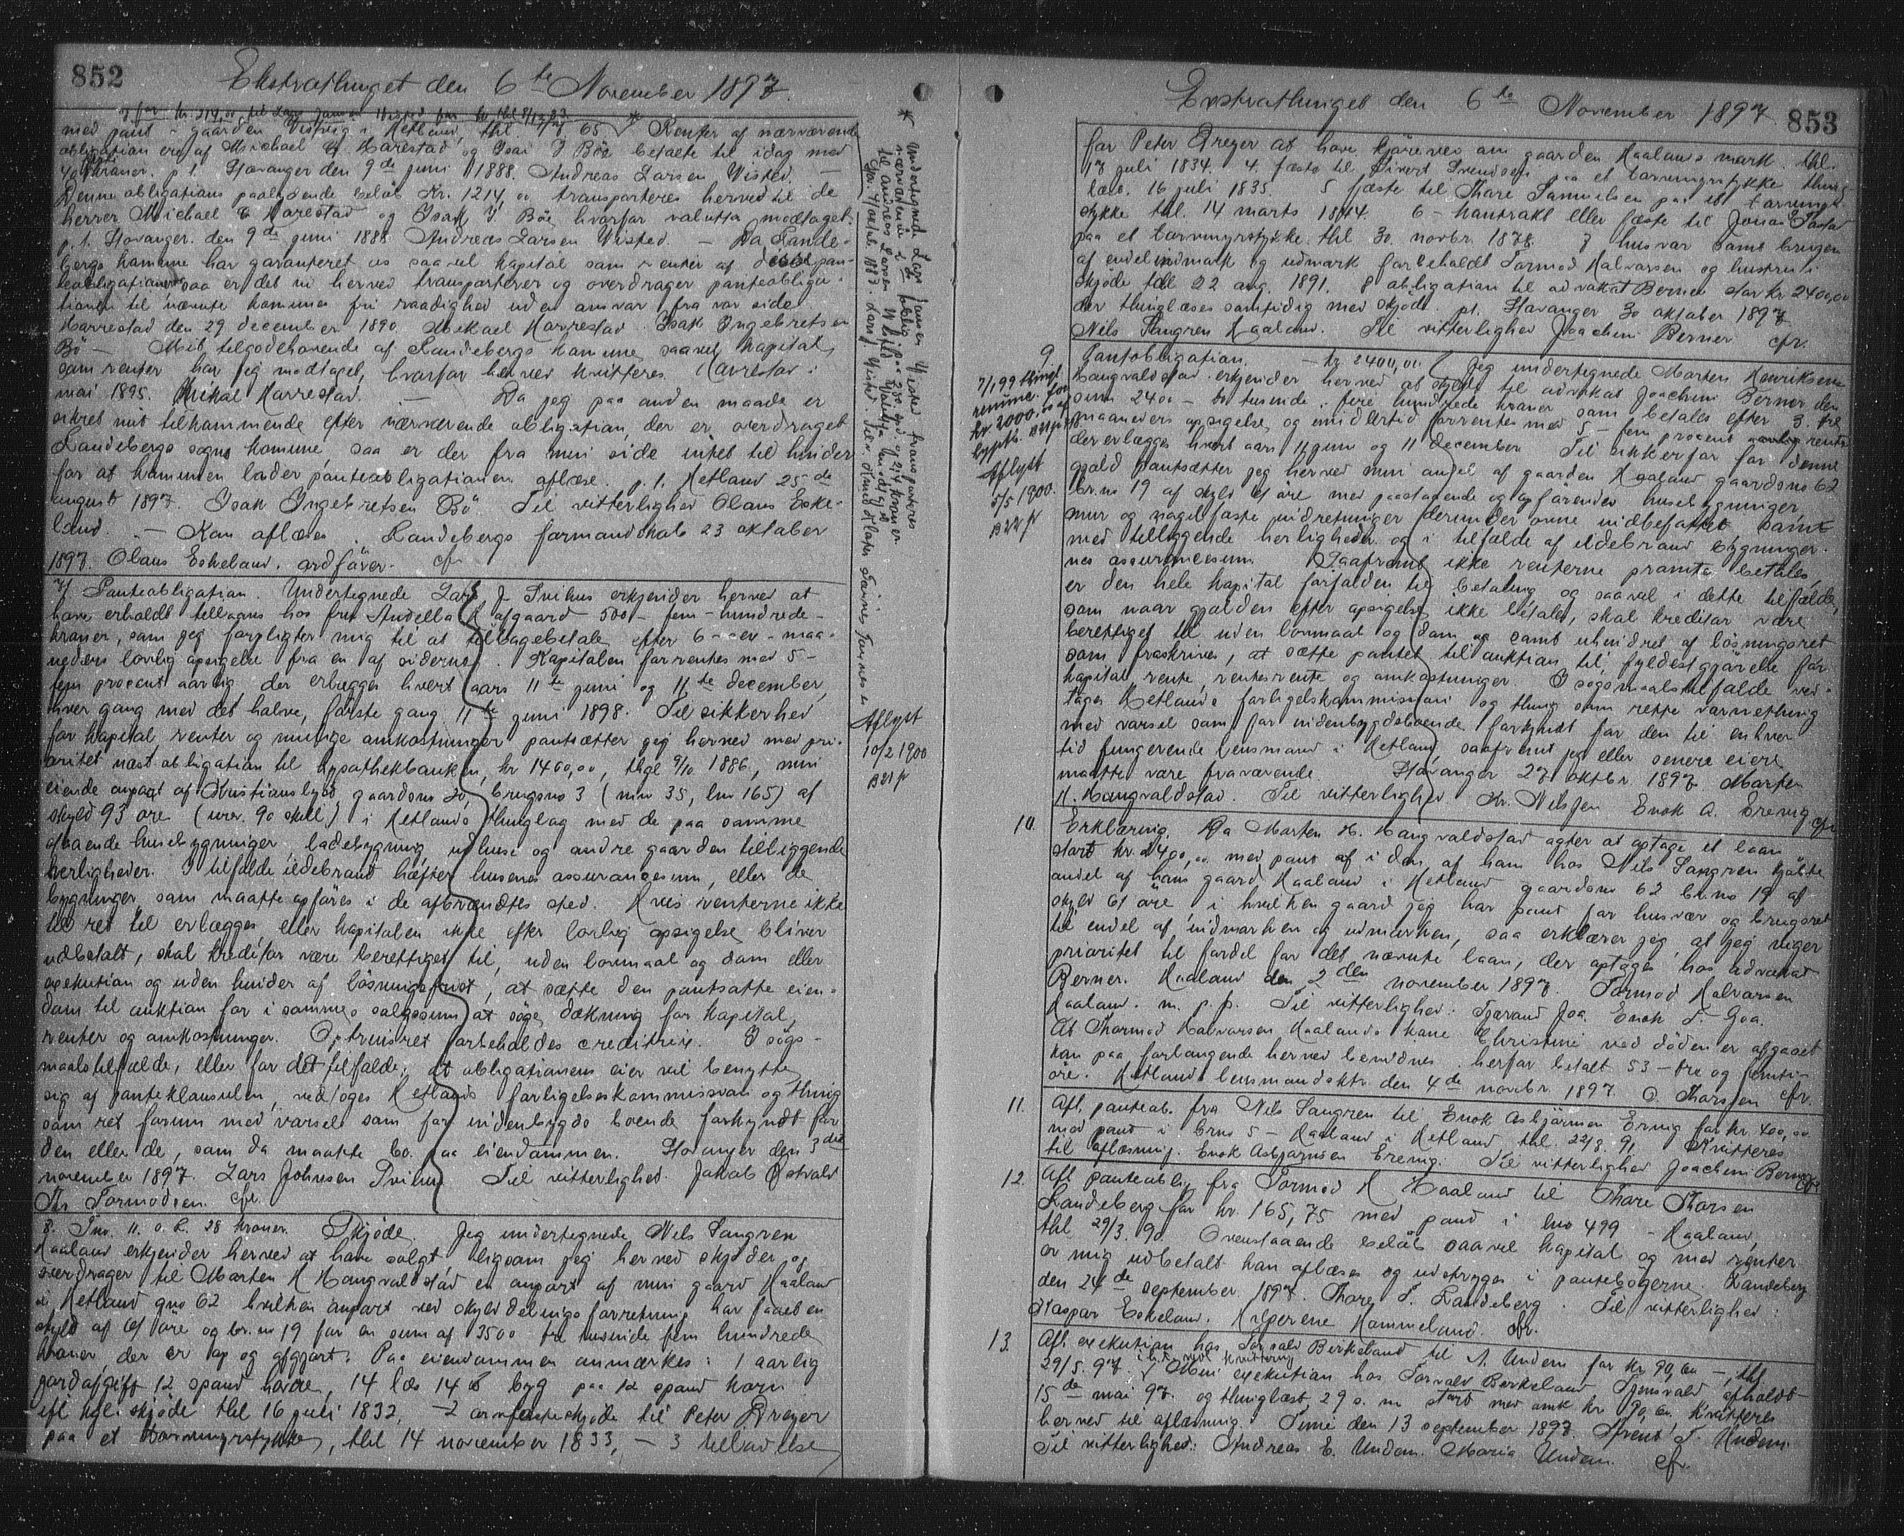 852
Ekstrathinget den 6te November 1897.
med pant i gaarden Visting i Hetland, thl. 65 Renter af nærværende
obligation ere af Michael E Harestad og Isak I Böe betalte til idag med
kroner. p. t. Stavanger den 9de juni 1888. Andreas Larsen Wisted. —
Denne obligations paalydende beløb Kr. 1214,00 transporteres herved til de
herrer Michael E Harestad og Isak I Böe hvorfor valutta modtaget.
p. t. Stavanger. den 9de juni 1888 Andreas Larsen Wisted — Da Lande-
bergs kommune har garanteret os saavel kapital som renter af denne pan-
teobligation saa er det vi herved transporterer og overdrager panteobliga-
tionen til nævnte kommune fri raadighed uden ansvar fra vor side.
Harrestad den 29 december 1890. Mikael Harrestad. Isak Ingebretsen
Bö — Mit tilgodehavende af Randebergs kommune, saavel kapital
som renter har jeg modtaget, hvorfor herved kvitteres Harrestad i
mai 1895. Mikal Harrestad. — Da jeg paa anden maade er
sikret mit tilkommende efter nærværende obligation, der er overdraget
Randebergs sogns komune, saa er der fra min side intet til hinder
for at kommunen lader panteobligationen aflæse. p. t. Hetland 25de
august 1897. Isak Ingebretsen Bö. Til vitterlighed Olaus Eske-
land. — Kan aflæses. Randebergs formandskab 23 oktober
1897. Olaus Eskeland. ordförer. cfr.
7/ Panteobligation. Undertegnede Lars J Tvihus erkjender herved at
have erholdt tillaans hos frk afgaard 500 — fem-hundrede-
kroner, som jeg forpligter mig til at tilbagebetale efter 6 — sex — maa-
neders lovlig opsigelse fra en af siderne. Kapitalen forrentes med 5 —
fem procent aarlig, der erlægges hvert aars 11te juni og 11te december,
hver gang med det halve, første gang 11te juni 1898. Til sikkerhed
for kapital, renter og mulige omkostninger pantsætter jeg herved med pri-
oritet næst obligation til hypothekbanken, kr 1400,00, thgl 9/10 1886, min
eiende anpart af Kristianslyst, gaardsno 20, brugsno 3 (mno 35, lno 165) af
skyld 93 øre (urev. 90 skill) i Hetlands thinglag med de paa samme
staaende husebygninger ladebygning udhuse og andre gaarden tilliggende
herligheder. I tilfælde ildebrand hæfter husenes assurancesum, eller de
bygninger, som maatte opføres i de afbrændtes sted. Hvis renterne ikke
til ret til erlægges eller kapitalen ikke efter lovlig opsigelse bliver
udbetalt, skal kreditor være berettiget til, uden lovmaal og dom eller
exekution og uden hinder af løsningsfrist, at sætte den pantsatte eien-
dom til auktion for i sammes salgssum at søge dækning for kapital,
renter og omkostninger. Optrinsret forbeholdes creditrix. I søgs-
maalstilfælde, eller for det tilfælde, at obligationens eier vil benytte
sig af panteklausulen, vedtoges Hetlands forligelseskommission og thing
som ret forum med varsel som for indenbygds boende forkyndt for
den eller de, som da maatte bo paa eiendommen. Stavanger den 3die
november 1897. Lars Johnsen Tvihus Til vitterlighed. Jakob Østvold
Th Tormodsen. cfr.
8. Ino. 11. o. R. 28 kroner. Skjøde. Jeg undertegnede Nils Tangren
Haaland erkjender herved at have solgt, ligesom jeg herved skjøder og
overdrager til Marten H Hangvaldstad en anpart af min gaard Haaland
i Hetland gno 62 hvilken anpart ved skylddelingsforretning har faaet en
skyld af 61 øre og br.no 19 for en sum af 3500 tre tusinde fem hundrede
kroner, der er op og afgjort. Paa eiendommen anmærkes: 1 aarlig
jordafgift 12 spand havre, 14 læs 14 byg paa 12 spand korn
ifl kgl. skjøde thl 16 juli 1832, — 2 arvefesteskjøde til Peter Dreyer
paa et torvmyrstykke, thl 14 november 1833, — 3 tilladelse
Aflyst
10/2 1900
B31
853
Ekstrathinget den 6te November 1897.
for Peter Dreyer at have kjørevei om gaarden Haalands mark. thl.
17 juli 1834. 4. fæste til Sivert Svendsen paa et torvmyrstykke thing
læst. 16 juli 1835. 5 fæste til Thore Samuelsen paa et torvmyr-
stykke thl. 14 marts 1844. 6 — kontrakt eller fæste til Jonas
paa et torvmyrstykke. thl 30. novbr. 1878. 7 husvær samt brugen
af endel indmark og udmark forbeholdt Tormod Halvorsen og hustru i
skjøde thl 22 aug. 1891. 8 obligation til advokat Berner stor kr 2400,00
der thinglæses samtidig med skjødet. pt. Stavanger 30 oktober 1897
Nils Tangren Haaland. Til vitterlighed Joachim Berner. cfr.
9. Pantobligation. — kr 2400,00. Jeg undertegnede Marten Henriksen
Hangvaldstad erkjender herved at skylde til advokat Joachim Berner den
sum 2400 — to tusende, fire hundrede kroner som betales efter 3. tre
maaneders opsigelse og imidlertid forrentes med 5 — fem procent aarlig rente
der erlægges hvert aars 11 juni og 11 december. Til sikkerhed for denne
gjæld pantsætter jeg herved min andel af gaarden Haaland gaardsno 62
br.no 19 af skyld 61 øre med paastaaende og opførendes husebygninger
mur og nagelfaste indretninger derunder ovne indbefattet samt
med tilliggende herligheder og i tilfælde af ildebrand bygninger-
nes assurancesum. Saafremt ikke renterne promte betales,
er den hele kapital forfalden til betaling og saavel i dette tilfælde,
som naar gjælden efter opsigelse ikke betales, skal kreditor være
berettiget til uden lovmaal og dom og samt uhindret af løsningsret
som fraskrives, at sætte pantet til auktion til fyldestgjørelse for
kapital, rente, rentesrente og omkostninger. I søgsmaalstilfælde ved-
tages Hetlands forligelskommission og thing som rette værnething
med varsel som for indenbygdsboende forkyndt for den til enhver
tid fungerende lensmand i Hetland, saafremt jeg eller senere eiere
maatte være fraværende. Stavanger 27 oktbr. 1897 Marten
H. Hangvaldstad. Til vitterlighed Chr. Nielsen Enok A. Erevig cfr
7/1 99 thingl.
kr 2000.00
Aflyst
5/5 1900.
B22
10. Erklæring. Da Marten H. Hangvaldstad agter at optage et laan
stort kr. 2400,00 med pant af i den af ham hos Nils Tangren kjøbte
andel af hans gaard Haaland i Hetland gaardsno 62 br.no 19 af
skyld 61 øre i hvilken gaard jeg har pant for husvær og brugsret
til endel af indmarken og udmarken, saa erklærer jeg, at jeg viger
prioritet til fordel for det nævnte laan, der optages hos advokat
Berner. Haaland den 2den november 1897. Tormod Halvorsen
Haaland. m. p. p. Til vitterlighed: Tjerand Joa. Enok T. Goa.
At Thormod Halvorsen Haalands kone Christine ved døden er afgaaet
kan paa forlangende herved bevidnes. herfor betalt 53 — tre og femti —
øre. Hetlands lensmandsktr. den 4de novbr. 1897. O. Thorsen cfr.
11. Afl. panteob. fra Nils Tangren til Enok Asbjørnsen Erevig for kr. 400,00
med pant i brno 5 — Haaland i Hetland thl. 22/8. 91. Kvitteres
til aflæsning. Enok Asbjørnsen Erevig. Til vitterlighed Joachim Berner cfr
12. Afl panteobl. fra Tormod H Haaland til Thore Thorsen
Randeberg for kr. 165,75 med pand i lno 499 — Haaland,
thl 29/3. 90. Ovenstaaende beløb saavel kapital og med renter
er mig udbetalt kan aflæses og udstryges i pantebøgerne. Randeberg
den 24de september 1897. Thore T. Randeberg. Til vitterlighed:
Kaspar Eskeland. Hammeland. cfr.
13. Afl exekution hos Torvald Birkeland til A. Undem for kr 90,60 —, thl
29/5. 97. Min exekution hos Torvald Birkeland Tjensvold afholdt
15de mai 97. og thinglæst 29 s. m stort med omk. kr. 90,60. kvitteres
herved til aflæsning. Time den 13 september 1897. Undem
Til vitterlighed: Andreas E. Undem. Maria Undem. cfr.